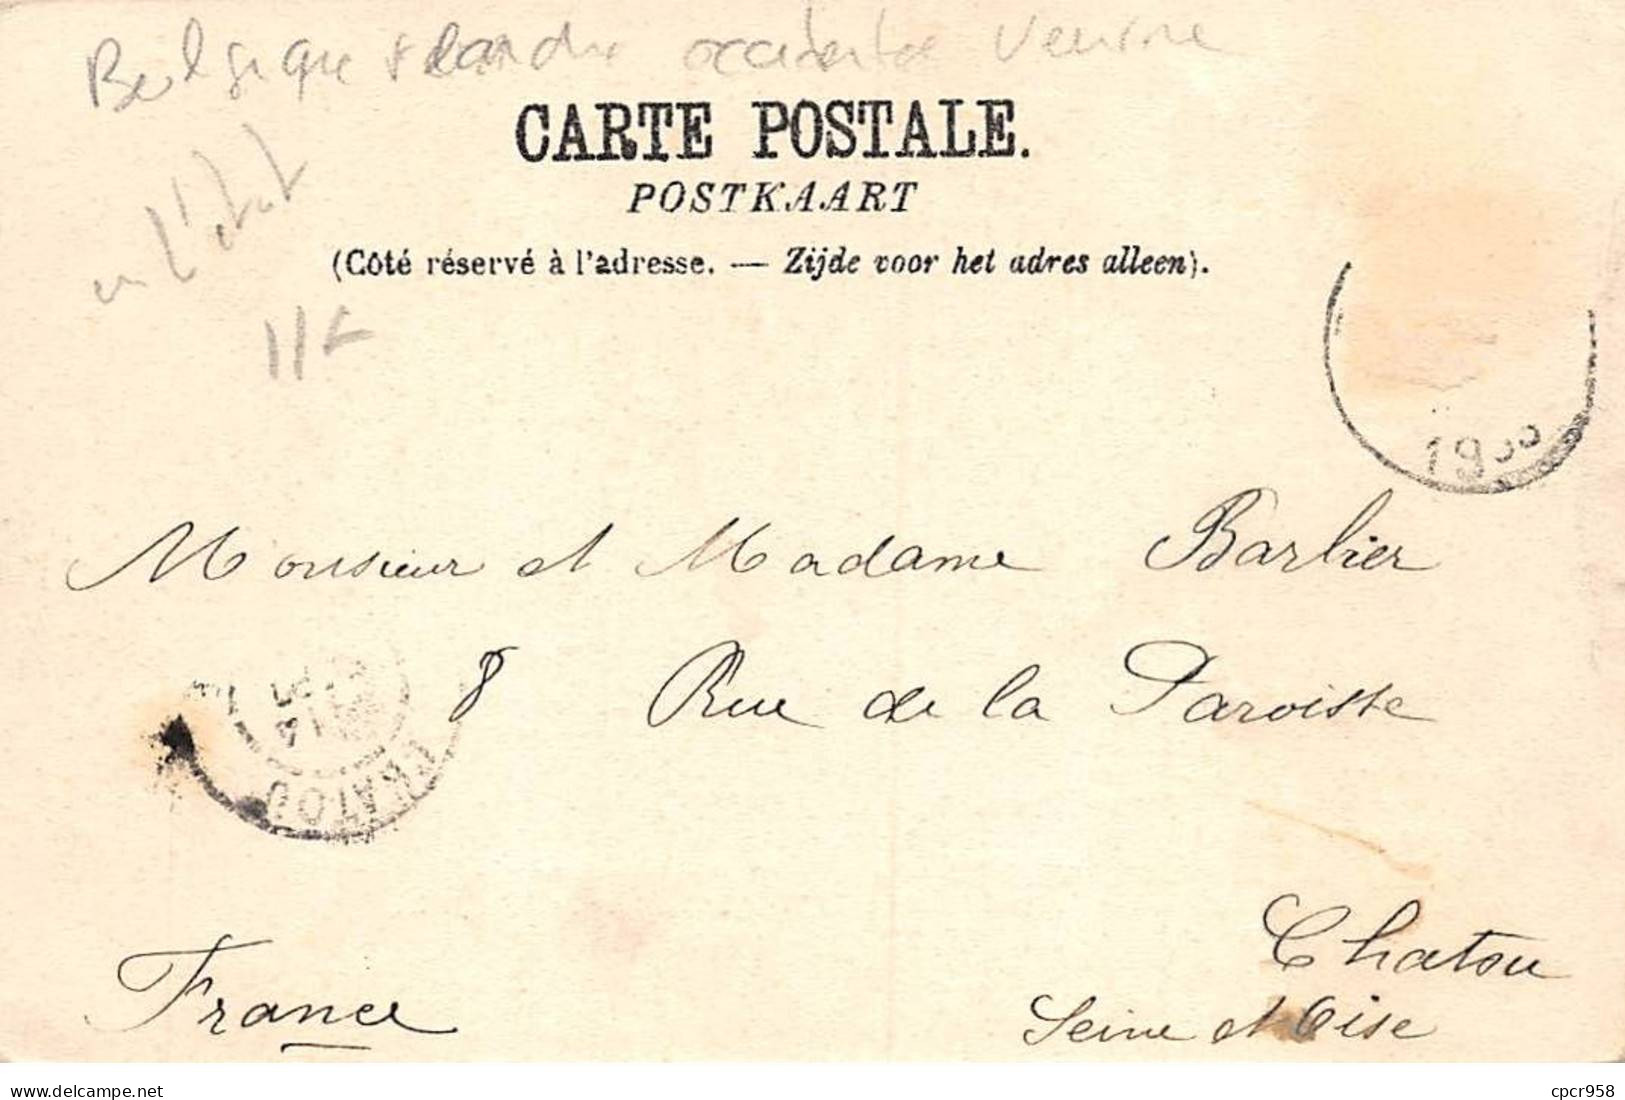 Belgique Flandre occidentale Veurne
en l'état
CARTE POSTALE.
POSTKAART
(Côté réservé à l'adresse. — Zijde voor het adres alleen).
11€
Monsieur et Madame Barbier
8 Rue de la Paroisse
CHATOU
France
Chatou
Seine et Oise
Delcampe.net
cpcr958